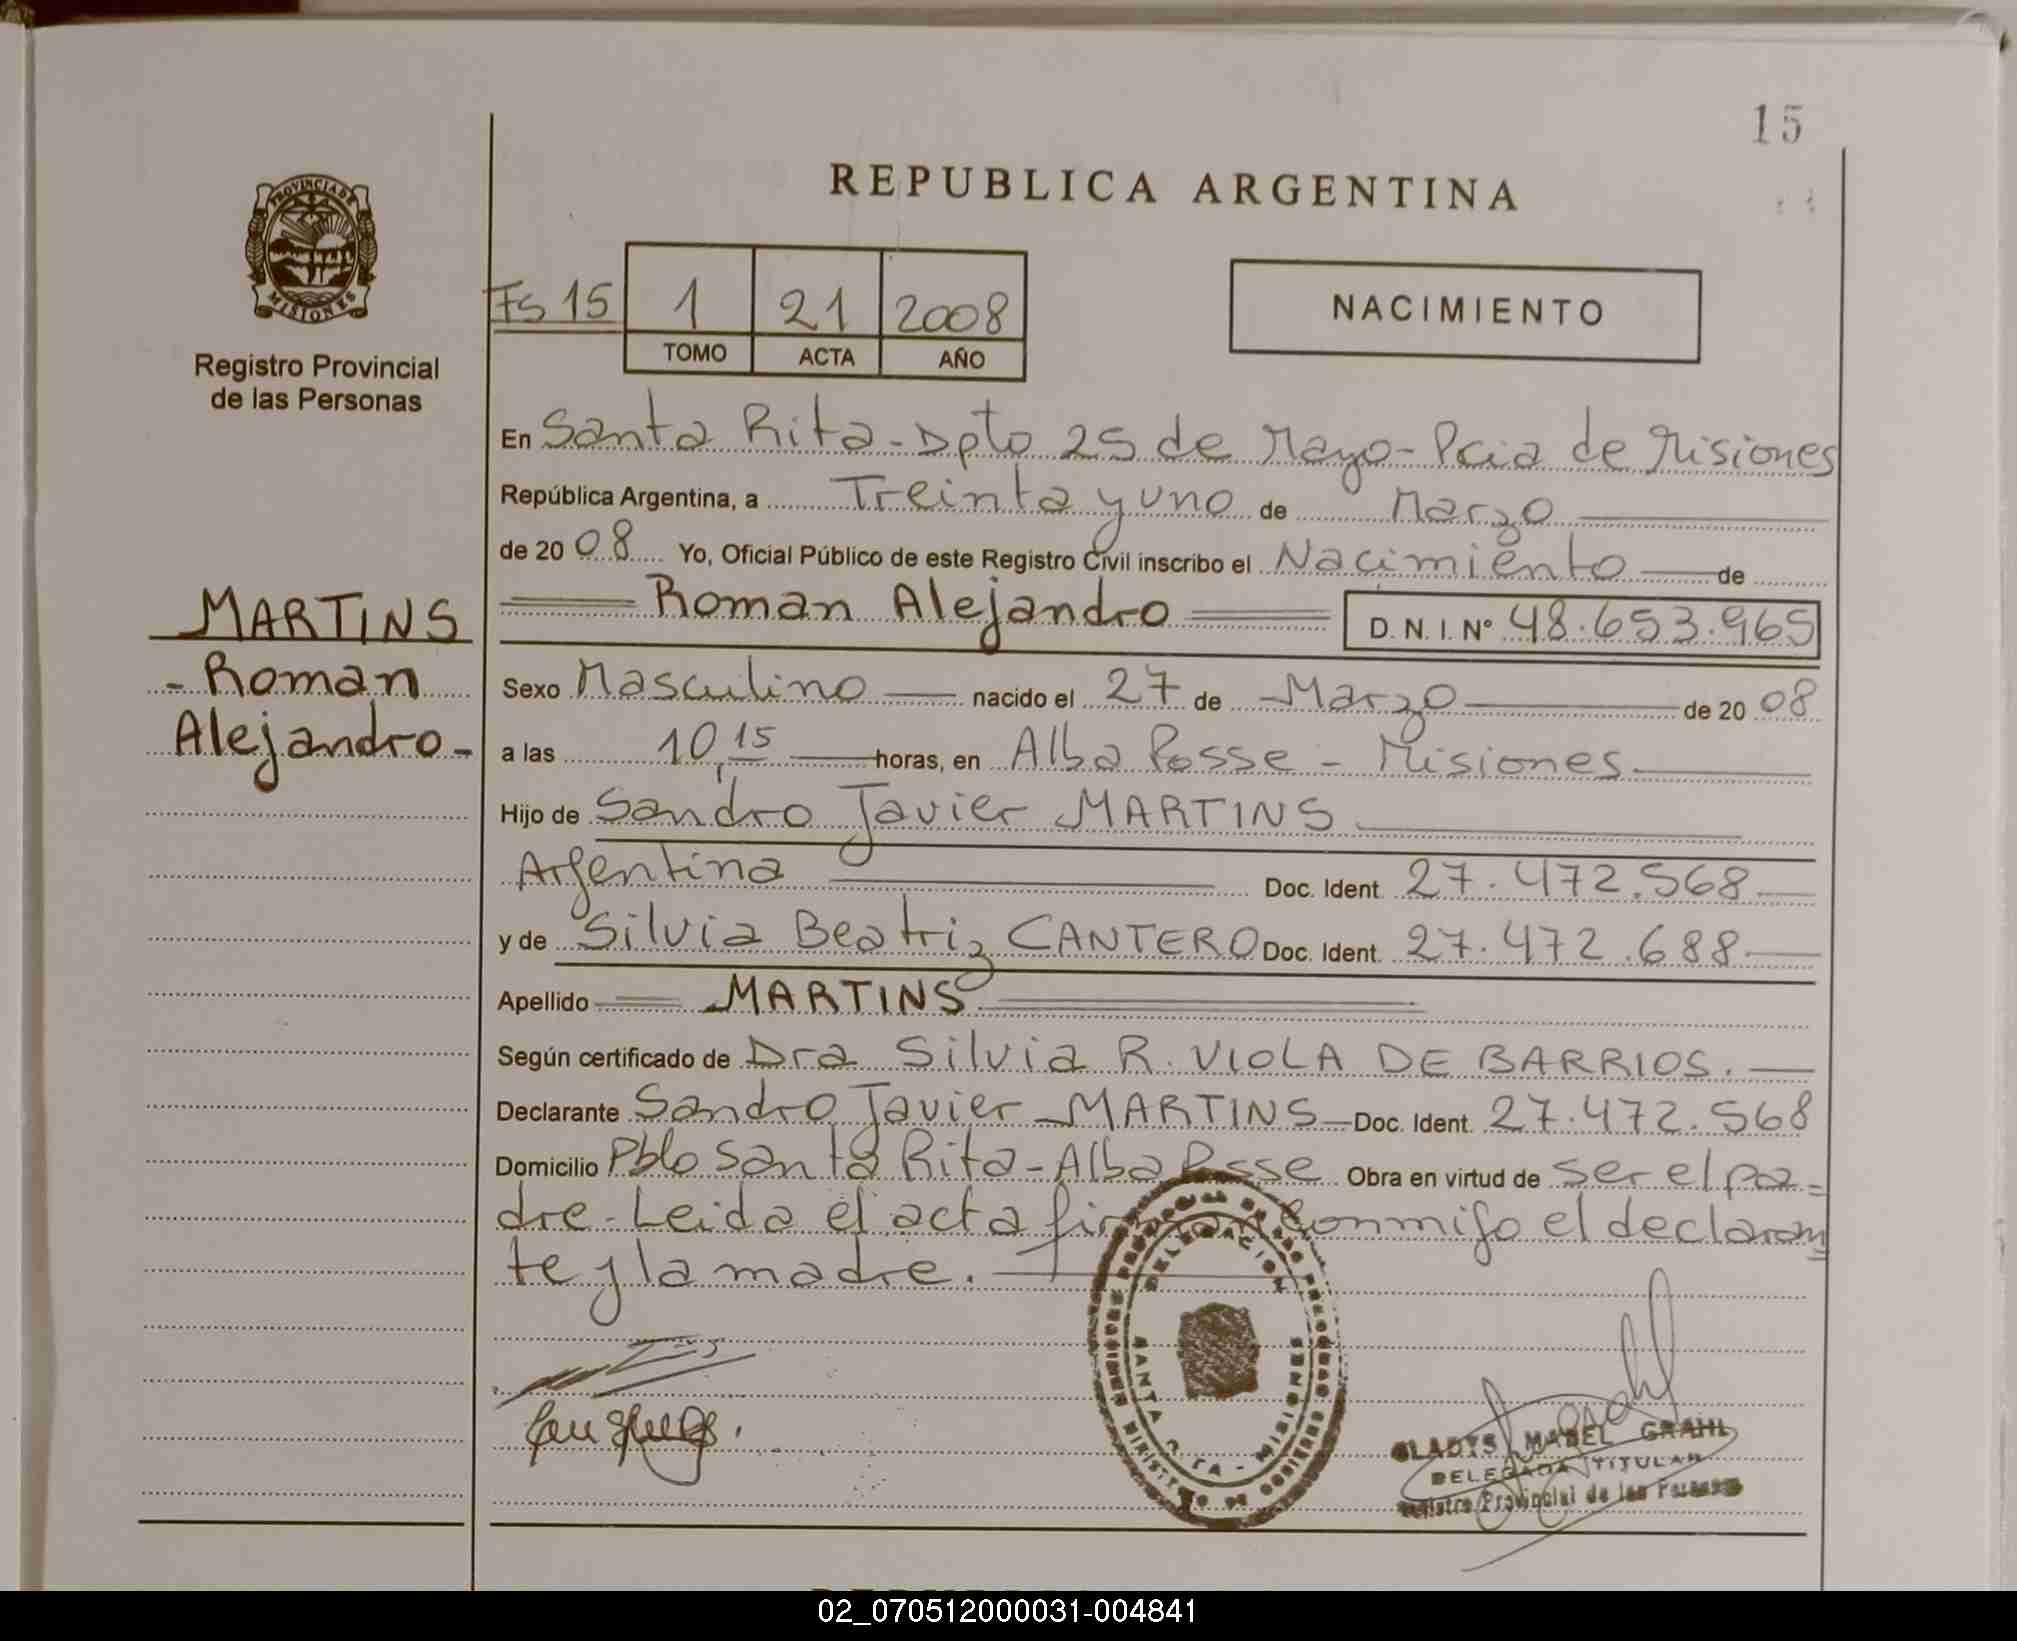 15
PROVINCIA DE
MISIONES
Registro Provincial
de las Personas
REPUBLICA ARGENTINA
Fs 15 1 21 2008
TOMO ACTA AÑO
NACIMIENTO
MARTINS
- Roman
Alejandro -
En Santa Rita - Dpto 25 de Mayo - Pcia de Misiones
República Argentina, a Treinta y uno de Marzo
de 20 08 Yo, Oficial Público de este Registro Civil inscribo el Nacimiento de
Roman Alejandro D. N. I. Nº 48.653.965
Sexo Masculino nacido el 27 de Marzo de 20 08
a las 10,15 horas, en Alba Posse - Misiones
Hijo de Sandro Javier MARTINS
Argentina Doc. Ident. 27.472.568
y de Silvia Beatriz CANTERO Doc. Ident. 27.472.688
Apellido MARTINS
Según certificado de Dra Silvia R. VIOLA DE BARRIOS.
Declarante Sandro Javier MARTINS Doc. Ident. 27.472.568
Domicilio Pblo Santa Rita - Alba Posse Obra en virtud de ser el pa=
dre - Leida el acta firman conmigo el declaran
te y la madre.
DELEGACION
SANTA RITA - MISIONES
GLADYS MABEL GRAHL
DELEGADA TITULAR
Registro Provincial de las Personas
02_070512000031-004841